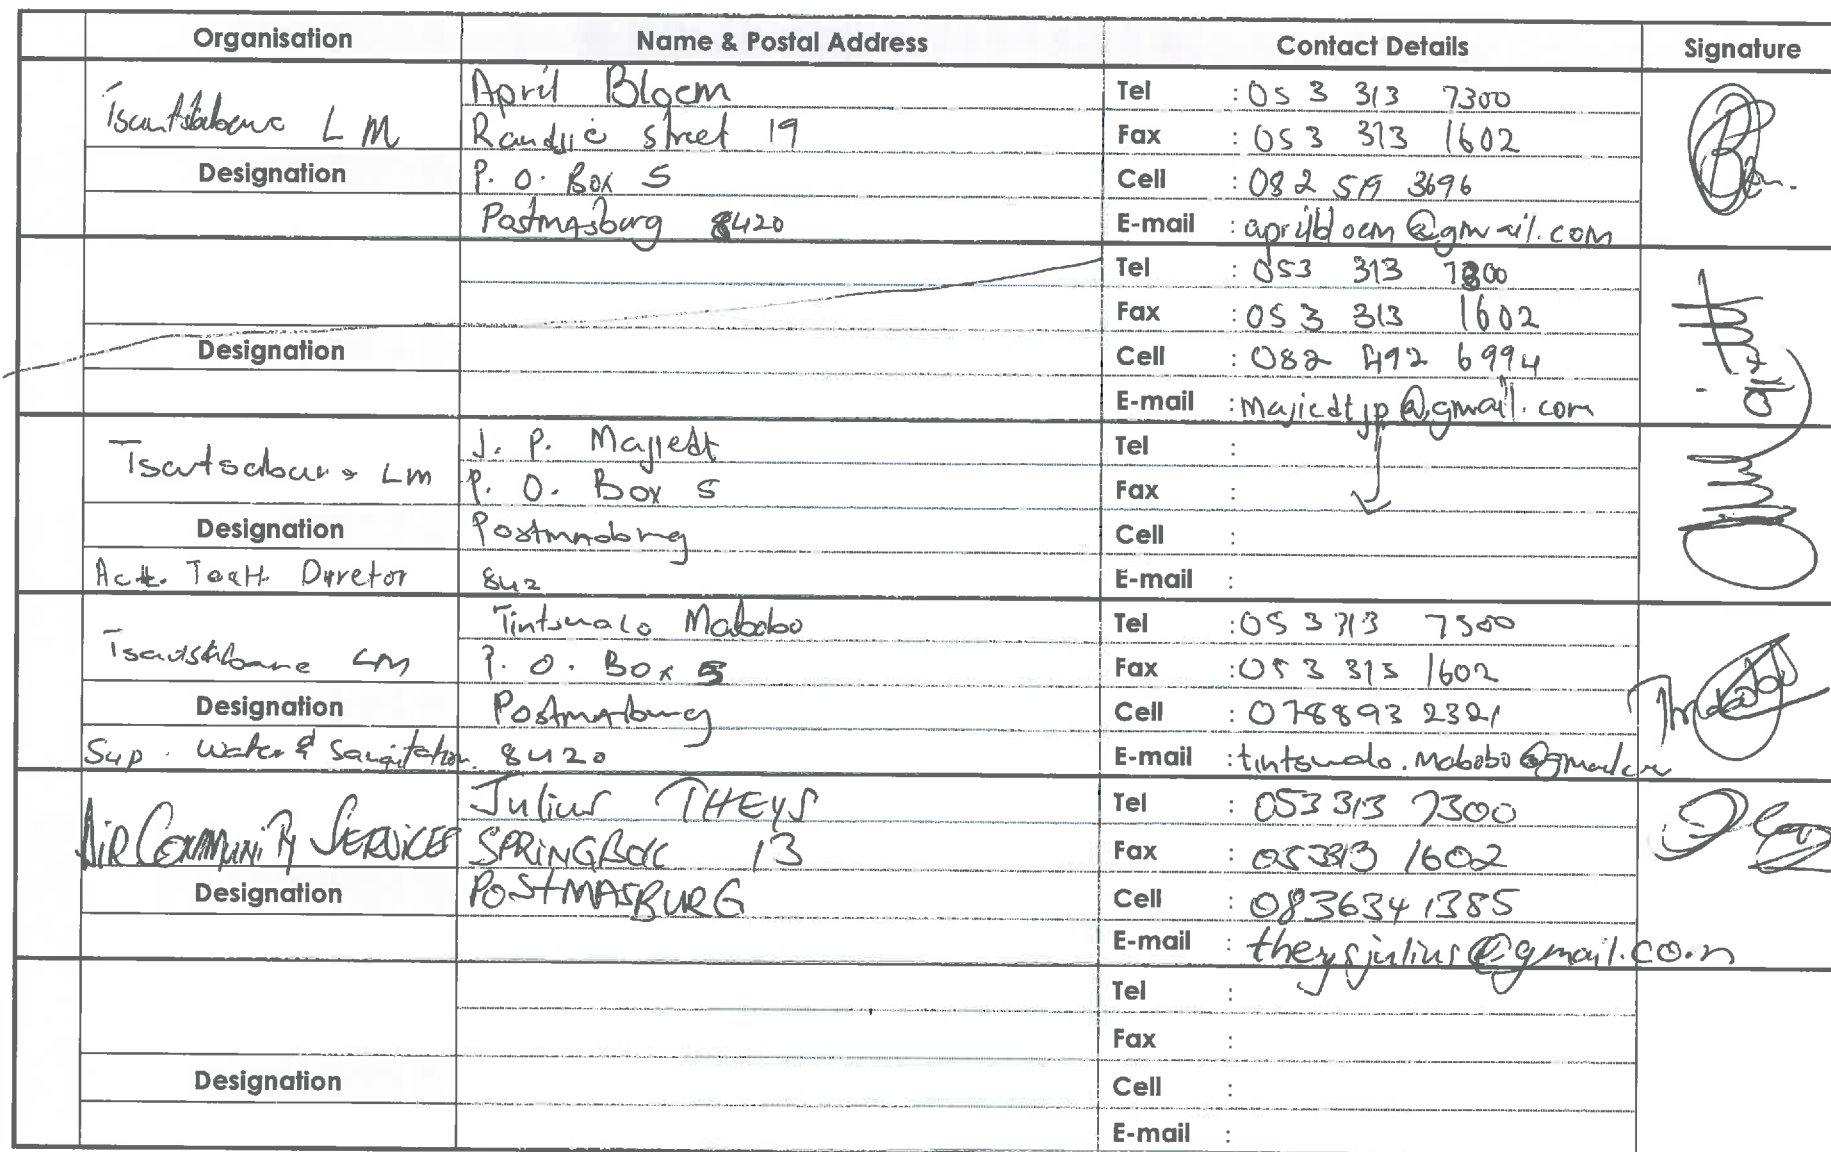 Organisation Name & Postal Address Contact Details Signature
Tsantsabane LM April Bloem Tel : 053 313 7300
Randjie street 19 Fax : 053 313 1602
Designation P. O. Box 5 Cell : 082 519 3696
Postmasburg 8420 E-mail : aprilbloem@gmail.com
Tel : 053 313 7300
Fax : 053 313 1602
Designation Cell : 082 492 6994
E-mail : Majiedtjp@gmail.com
Tsantsabane LM J. P. Majiedt Tel :
P. O. Box 5 Fax :
Designation Postmasburg Cell :
Act. Director 842 E-mail :
Tsantsabane LM Tintswalo Mabobo Tel : 053 313 7300
P. O. Box 5 Fax : 053 313 1602
Designation Postmasburg Cell : 078893 2321
Sup. Water & Sanitation 8420 E-mail : tintswalo.Mabobo@gmail.co
COMMUNITY SERVICES Julius THEYS Tel : 053 313 7300
SPRINGBOK 13 Fax : 053313 1602
Designation POSTMASBURG Cell : 0836341385
E-mail : theysjulius@gmail.com
Tel :
Fax :
Designation Cell :
E-mail :